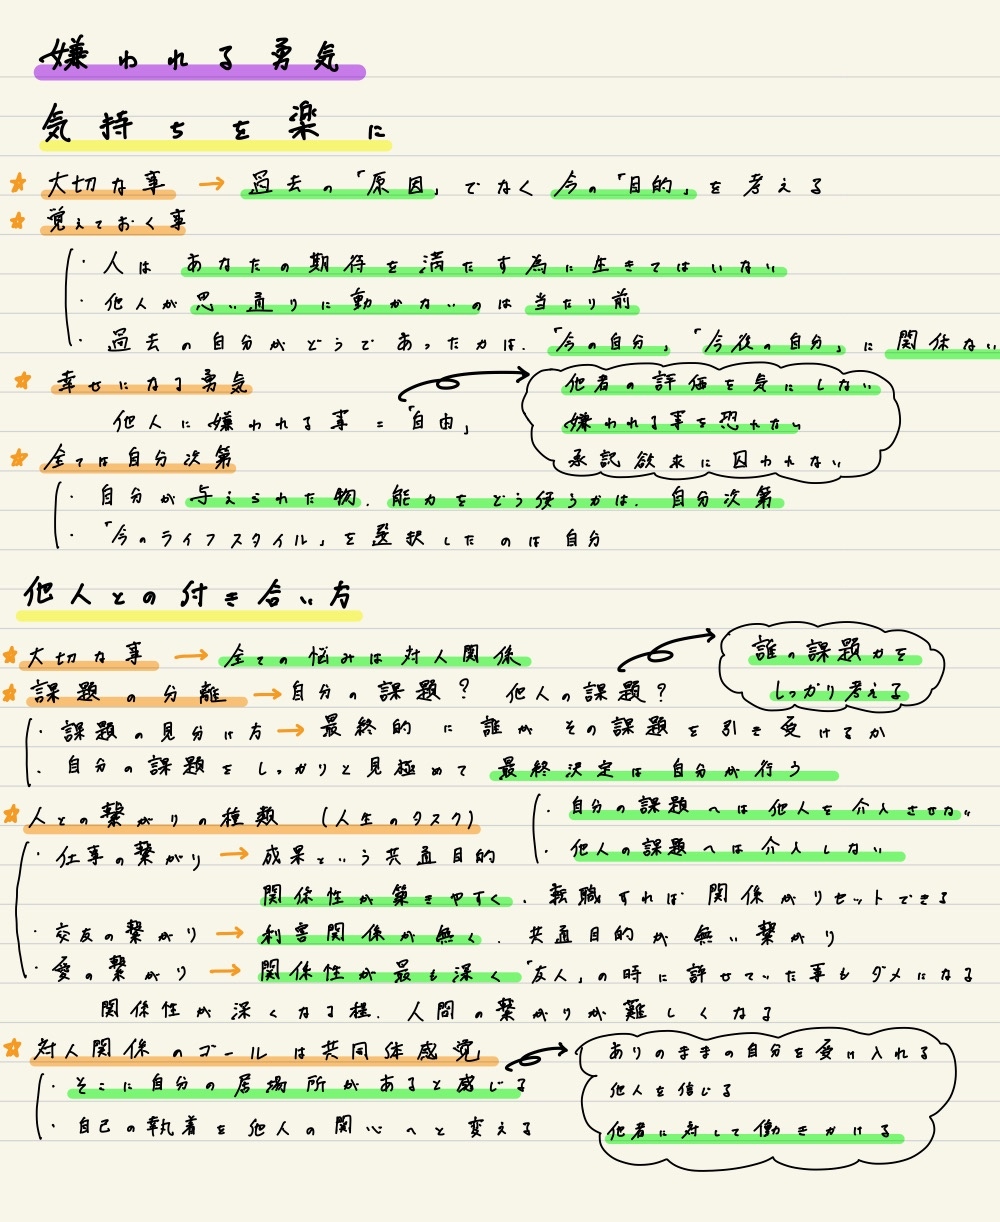 嫌われる勇気
気持ちを楽に
☆ 大切な事 → 過去の「原因」でなく今の「目的」を考える
☆ 覚えておく事
・人は あなたの期待を満たす為に生きてはいない
・他人が思い通りに動かないのは当たり前
・過去の自分がどうであったかは、「今の自分」「今後の自分」に関係ない
☆ 幸せになる勇気
他人に嫌われる事 = 「自由」
他者の評価を気にしない
嫌われる事を恐れない
承認欲求に囚われない
☆ 全ては自分次第
・自分が与えられた物、能力をどう使うかは、自分次第
・「今のライフスタイル」を選択したのは自分
他人との付き合い方
☆ 大切な事 → 全ての悩みは対人関係
☆ 課題の分離 → 自分の課題? 他人の課題?
誰の課題かを
しっかり考える
・課題の見分け方 → 最終的に誰がその課題を引き受けるか
・自分の課題をしっかりと見極めて 最終決定は自分が行う
・自分の課題へは他人を介入させない
・他人の課題へは介入しない
☆ 人との繋がりの種類 (人生のタスク)
・仕事の繋がり → 成果という共通目的
関係性が築きやすく、転職すれば関係がリセットできる
・交友の繋がり → 利害関係が無く、共通目的が無い繋がり
・愛の繋がり → 関係性が最も深く「友人」の時に許せていた事もダメになる
関係性が深くなる程、人間の繋がりが難しくなる
☆ 対人関係のゴールは共同体感覚
・そこに自分の居場所があると感じる
・自己の執着を他人の関心へと変える
ありのままの自分を受け入れる
他人を信じる
他者に対して働きかける